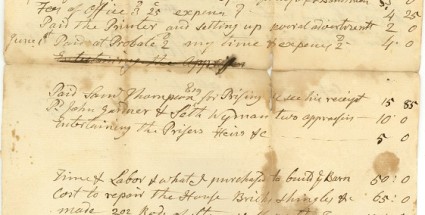 Fees of Office 2 25 expence 2 4 25
Paid the Printer and setting up several advertisments 2 0
Paid at Probate 2 my time & expence 2 4 0
Paid Saml Thompson Esq for Prising see his receipt 15 85
P. John Gardner & Seth Wyman two apprisers 10 0
Entertaining the Prisers Heirs &c 5 0
Time & Labor & what I purchased to build ye Barn 50 0
Cost to repair the House Brick shingles & c 65 0
made 202 Rods of